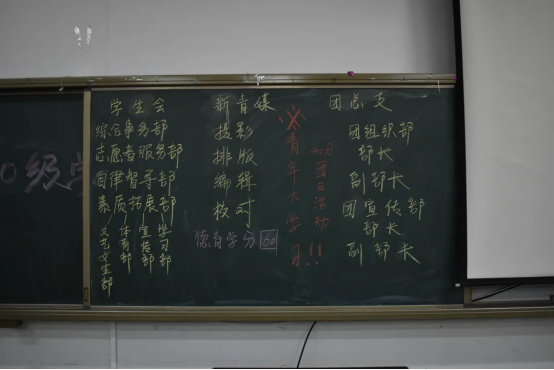 0级学
学生会
综合事务部
志愿者服务部
自律督导部
素质拓展部
文艺女生部
体育部
宣传部
学习部
新青媒
摄影
排版
编辑
校对
德育学分 60
青年大学习!!
团日活动
团总支
团组织部
部长
副部长
团宣传部
部长
副部长